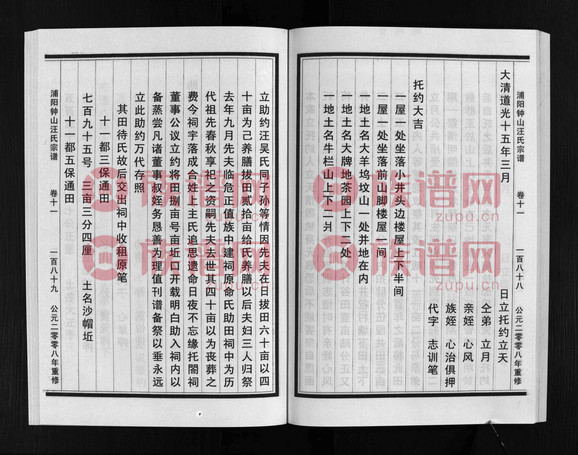 浦阳钟山汪氏宗谱 卷十一 一百八十八 公元二零零八年重修
大清道光十五年三月 日立托约立天
仝弟 立月
亲姪 心风
族姪 心治俱押
代字 志训笔
托约大吉
一屋一处坐落小井头边楼屋上下半间
一屋一处坐落前山脚楼屋一间
一地土名大羊坞坟山一处并地在内
一地土名大牌地茶园上下二处
一地土名牛栏山上下二爿
立助约汪吴氏同子孙等情因先夫在日拔田六十亩以四
十亩为己养膳拔田贰拾亩给氏养膳以后夫妇三人归祭
去年九月先夫临危正值族中建祠原命氏助田祠中为历
代祖先春秋享祀之资嗣先夫去世其四十亩以为丧葬之
费今祠宇落成合姓上主氏追思遗命日夜不忘缘托阖祠
董事公议立约将田捌亩号亩坵口开载明白助入祠内以
备蒸尝凡诸董事叔姪务恳善为理值刊谱备祭以垂永远
立此助约万代存照
其田待氏故后交出祠中收租原笔
十一都三保通田
七百九十五号 三亩三分四厘 土名沙帽坵
十一都五保通田
浦阳钟山汪氏宗谱 卷十一 一百八十九 公元二零零八年重修
族谱网
zupu.cn
族谱网
zupu.cn
族谱网
zupu.cn
族谱网
zupu.cn